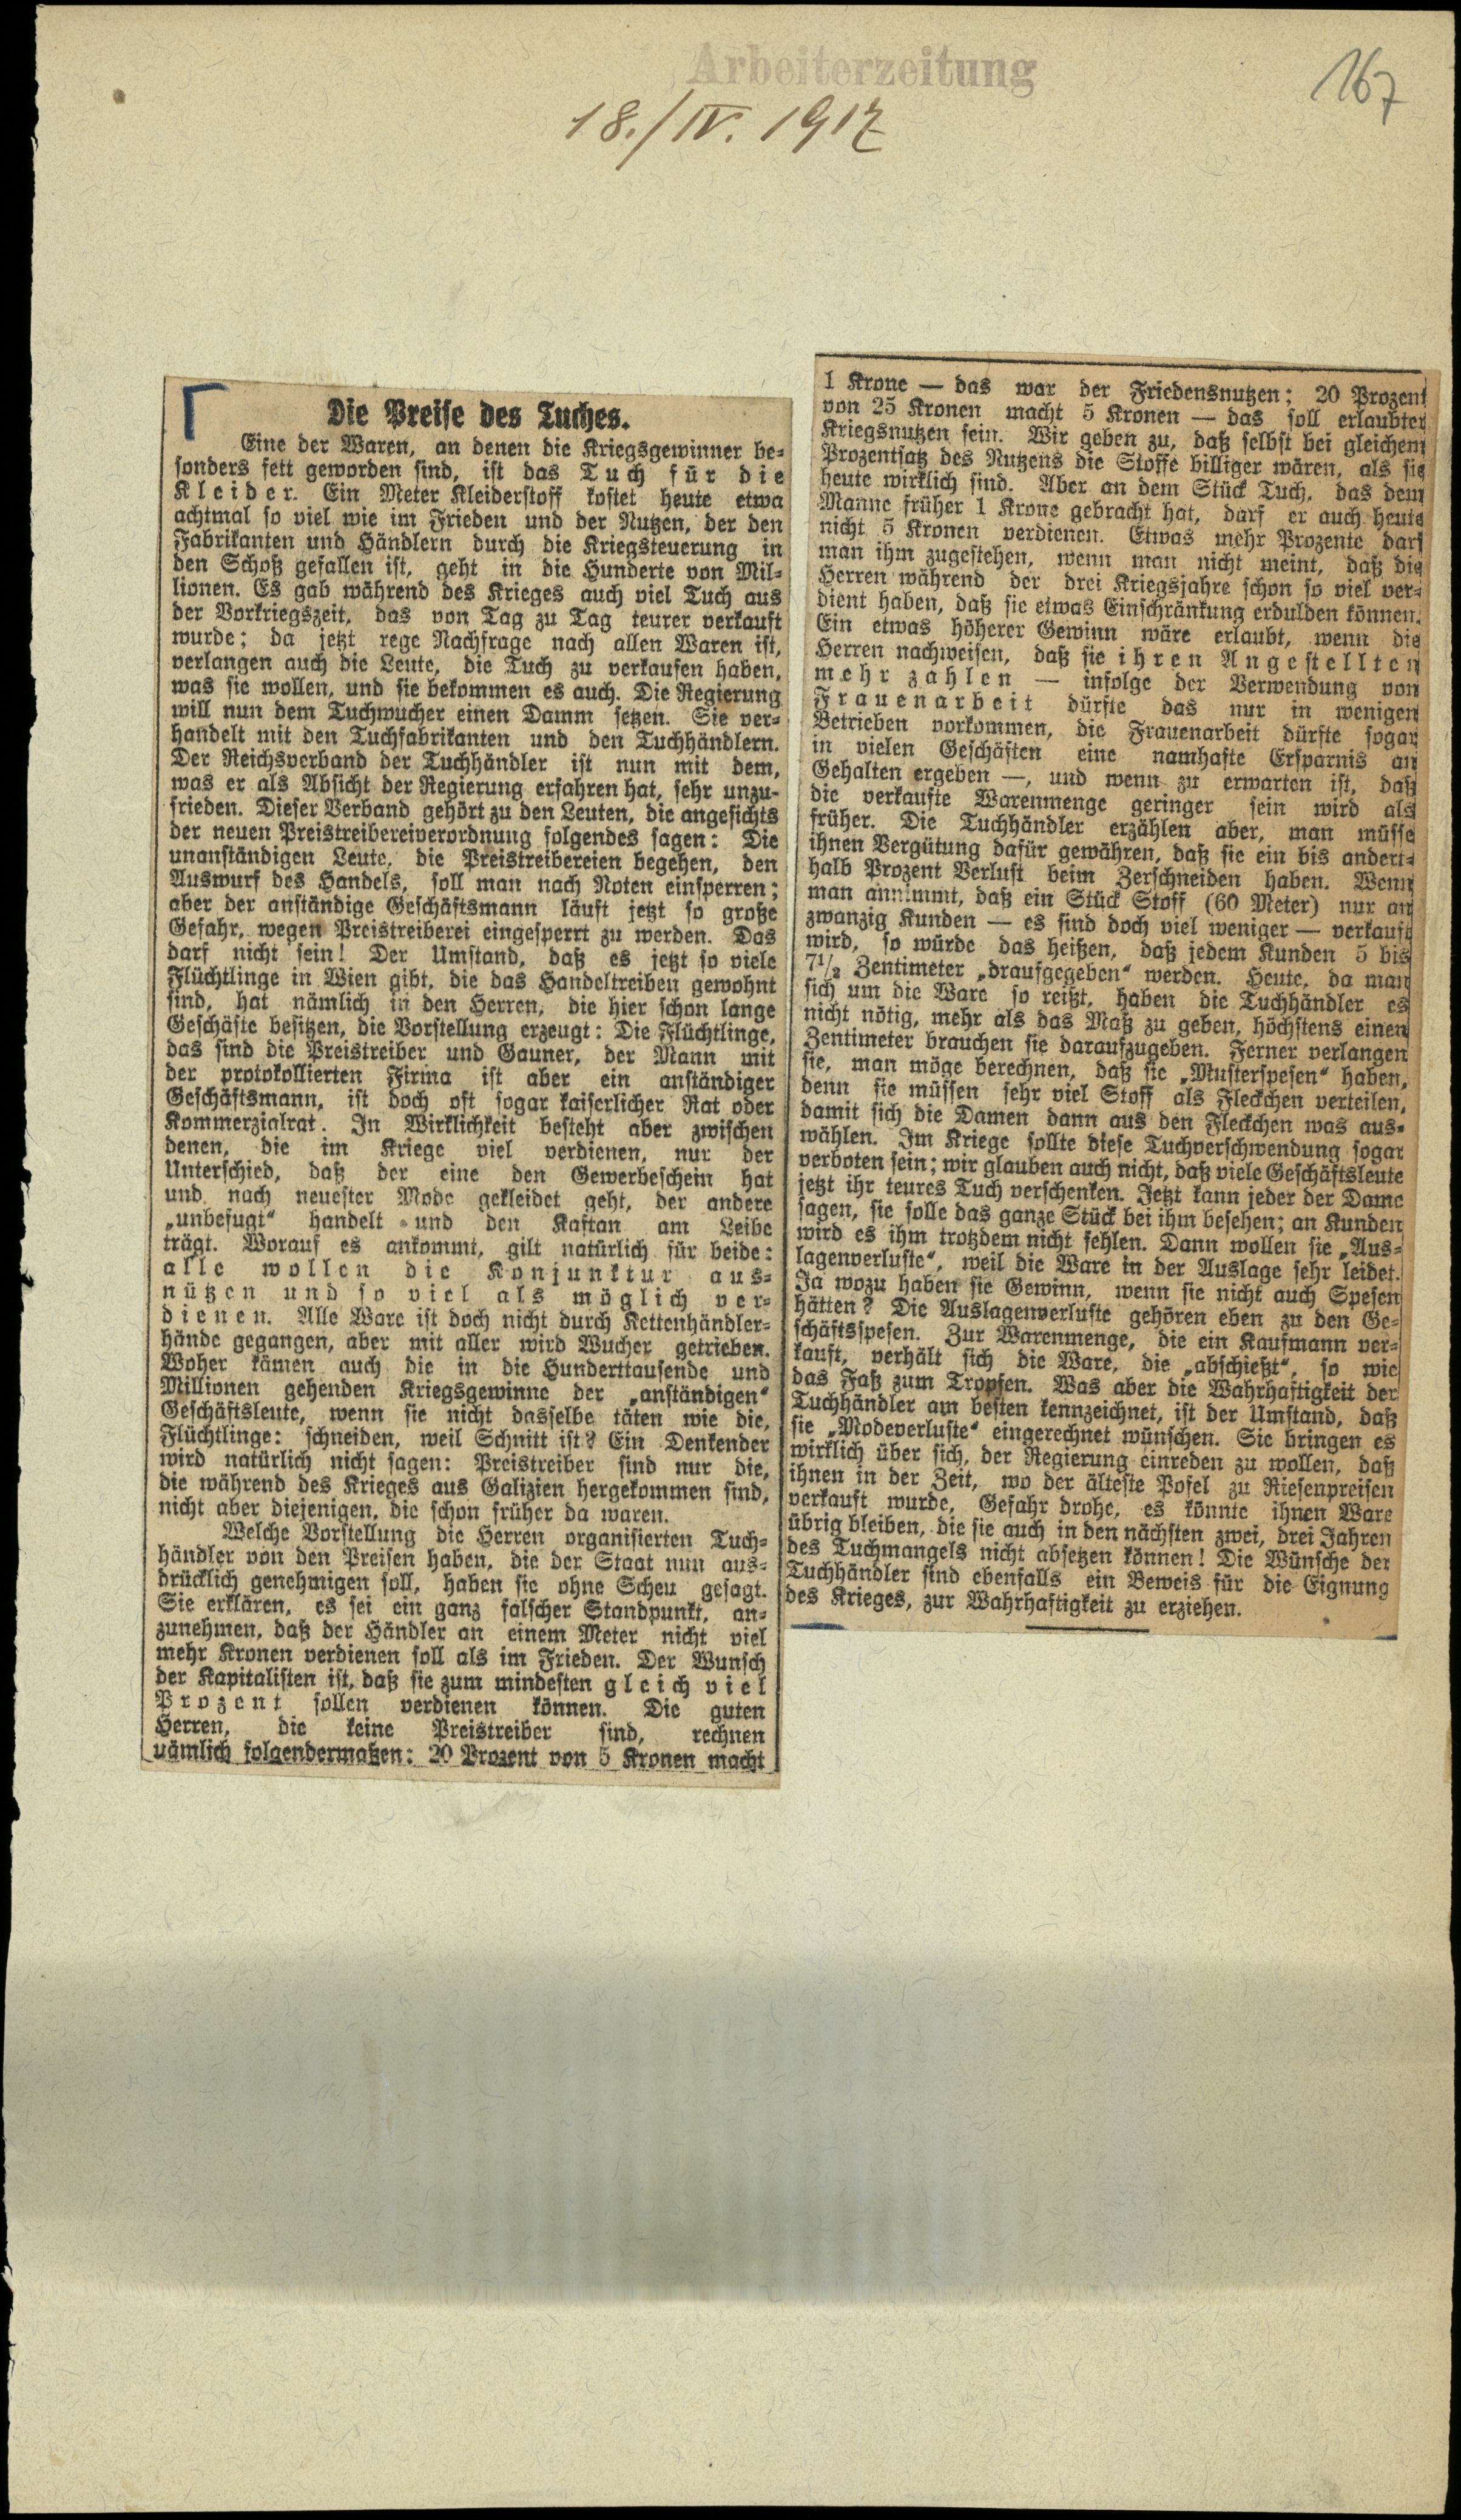 Arbeiterzeitung
167
18./IV. 1917
Die Preise des Tuches.
Eine der Waren, an denen die Kriegsgewinner be-
sonders fett geworden sind, ist das Tuch für die
Kleider. Ein Meter Kleiderstoff kostet heute etwa
achtmal so viel wie im Frieden und der Nutzen, der den
Fabrikanten und Händlern durch die Kriegsteuerung in
den Schoß gefallen ist, geht in die Hunderte von Mil-
lionen. Es gab während des Krieges auch viel Tuch aus
der Vorkriegszeit, das von Tag zu Tag teurer verkauft
wurde; da jetzt rege Nachfrage nach allen Waren ist,
verlangen auch die Leute, die Tuch zu verkaufen haben,
was sie wollen, und sie bekommen es auch. Die Regierung
will nun dem Tuchwucher einen Damm setzen. Sie ver-
handelt mit den Tuchfabrikanten und den Tuchhändlern.
Der Reichsverband der Tuchhändler ist nun mit dem,
was er als Absicht der Regierung erfahren hat, sehr unzu-
frieden. Dieser Verband gehört zu den Leuten, die angesichts
der neuen Preistreibereiverordnung folgendes sagen: Die
unanständigen Leute, die Preistreibereien begehen, den
Auswurf des Handels, soll man nach Noten einsperren;
aber der anständige Geschäftsmann läuft jetzt so große
Gefahr, wegen Preistreiberei eingesperrt zu werden. Das
darf nicht sein! Der Umstand, daß es jetzt so viele
Flüchtlinge in Wien gibt, die das Handeltreiben gewohnt
sind, hat nämlich in den Herren, die hier schon lange
Geschäfte besitzen, die Vorstellung erzeugt: Die Flüchtlinge,
das sind die Preistreiber und Gauner, der Mann mit
der protokollierten Firma ist aber ein anständiger
Geschäftsmann, ist doch oft sogar kaiserlicher Rat oder
Kommerzialrat. In Wirklichkeit besteht aber zwischen
denen, die im Kriege viel verdienen, nur der
Unterschied, daß der eine den Gewerbeschein hat
und nach neuester Mode gekleidet geht, der andere
„unbefugt“ handelt und den Kaftan am Leibe
trägt. Worauf es ankommt, gilt natürlich für beide:
alle wollen die Konjunktur aus-
nützen und so viel als möglich ver-
dienen. Alle Ware ist doch nicht durch Kettenhändler-
hände gegangen, aber mit aller wird Wucher getrieben.
Woher kämen auch die in die Hunderttausende und
Millionen gehenden Kriegsgewinne der „anständigen“
Geschäftsleute, wenn sie nicht dasselbe täten wie die,
Flüchtlinge: schneiden, weil Schnitt ist? Ein Denkender
wird natürlich nicht sagen: Preistreiber sind nur die,
die während des Krieges aus Galizien hergekommen sind,
nicht aber diejenigen, die schon früher da waren.
Welche Vorstellung die Herren organisierten Tuch-
händler von den Preisen haben, die der Staat nun aus-
drücklich genehmigen soll, haben sie ohne Scheu gesagt.
Sie erklären, es sei ein ganz falscher Standpunkt, an-
zunehmen, daß der Händler an einem Meter nicht viel
mehr Kronen verdienen soll als im Frieden. Der Wunsch
der Kapitalisten ist, daß sie zum mindesten gleich viel
Prozent sollen verdienen können. Die guten
Herren, die keine Preistreiber sind, rechnen
nämlich folgendermaßen: 20 Prozent von 5 Kronen macht
1 Krone — das war der Friedensnutzen; 20 Prozent
von 25 Kronen macht 5 Kronen — das soll erlaubter
Kriegsnutzen sein. Wir geben zu, daß selbst bei gleichem
Prozentsatz des Nutzens die Stoffe billiger wären, als sie
heute wirklich sind. Aber an dem Stück Tuch, das dem
Manne früher 1 Krone gebracht hat, darf er auch heute
nicht 5 Kronen verdienen. Etwas mehr Prozente darf
man ihm zugestehen, wenn man nicht meint, daß die
Herren während der drei Kriegsjahre schon so viel ver-
dient haben, daß sie etwas Einschränkung erdulden können.
Ein etwas höherer Gewinn wäre erlaubt, wenn die
Herren nachweisen, daß sie ihren Angestellten
mehr zahlen — infolge der Verwendung von
Frauenarbeit dürfte das nur in wenigen
Betrieben vorkommen, die Frauenarbeit dürfte sogar
in vielen Geschäften eine namhafte Ersparnis an
Gehalten ergeben —, und wenn zu erwarten ist, daß
die verkaufte Warenmenge geringer sein wird als
früher. Die Tuchhändler erzählen aber, man müsse
ihnen Vergütung dafür gewähren, daß sie ein bis andert-
halb Prozent Verlust beim Zerschneiden haben. Wenn
man annimmt, daß ein Stück Stoff (60 Meter) nur an
zwanzig Kunden — es sind doch viel weniger — verkauft
wird, so würde das heißen, daß jedem Kunden 5 bis
7½ Zentimeter „draufgegeben“ werden. Heute, da man
sich um die Ware so reißt, haben die Tuchhändler es
nicht nötig, mehr als das Maß zu geben, höchstens einen
Zentimeter brauchen sie daraufzugeben. Ferner verlangen
sie, man möge berechnen, daß sie „Musterspesen“ haben,
denn sie müssen sehr viel Stoff als Fleckchen verteilen,
damit sich die Damen dann aus den Fleckchen was aus-
wählen. Im Kriege sollte diese Tuchverschwendung sogar
verboten sein; wir glauben auch nicht, daß viele Geschäftsleute
jetzt ihr teures Tuch verschenken. Jetzt kann jeder der Dame
sagen, sie solle das ganze Stück bei ihm besehen; an Kunden
wird es ihm trotzdem nicht fehlen. Dann wollen sie „Aus-
lagenverluste“, weil die Ware in der Auslage sehr leidet.
Ja wozu haben sie Gewinn, wenn sie nicht auch Spesen
hätten? Die Auslagenverluste gehören eben zu den Ge-
schäftsspesen. Zur Warenmenge, die ein Kaufmann ver-
kauft, verhält sich die Ware, die „abschießt“, so wie
das Faß zum Tropfen. Was aber die Wahrhaftigkeit der
Tuchhändler am besten kennzeichnet, ist der Umstand, daß
sie „Modeverluste“ eingerechnet wünschen. Sie bringen es
wirklich über sich, der Regierung einreden zu wollen, daß
ihnen in der Zeit, wo der älteste Posel zu Riesenpreisen
verkauft wurde, Gefahr drohe, es könnte ihnen Ware
übrig bleiben, die sie auch in den nächsten zwei, drei Jahren
des Tuchmangels nicht absetzen können! Die Wünsche der
Tuchhändler sind ebenfalls ein Beweis für die Eignung
des Krieges, zur Wahrhaftigkeit zu erziehen.